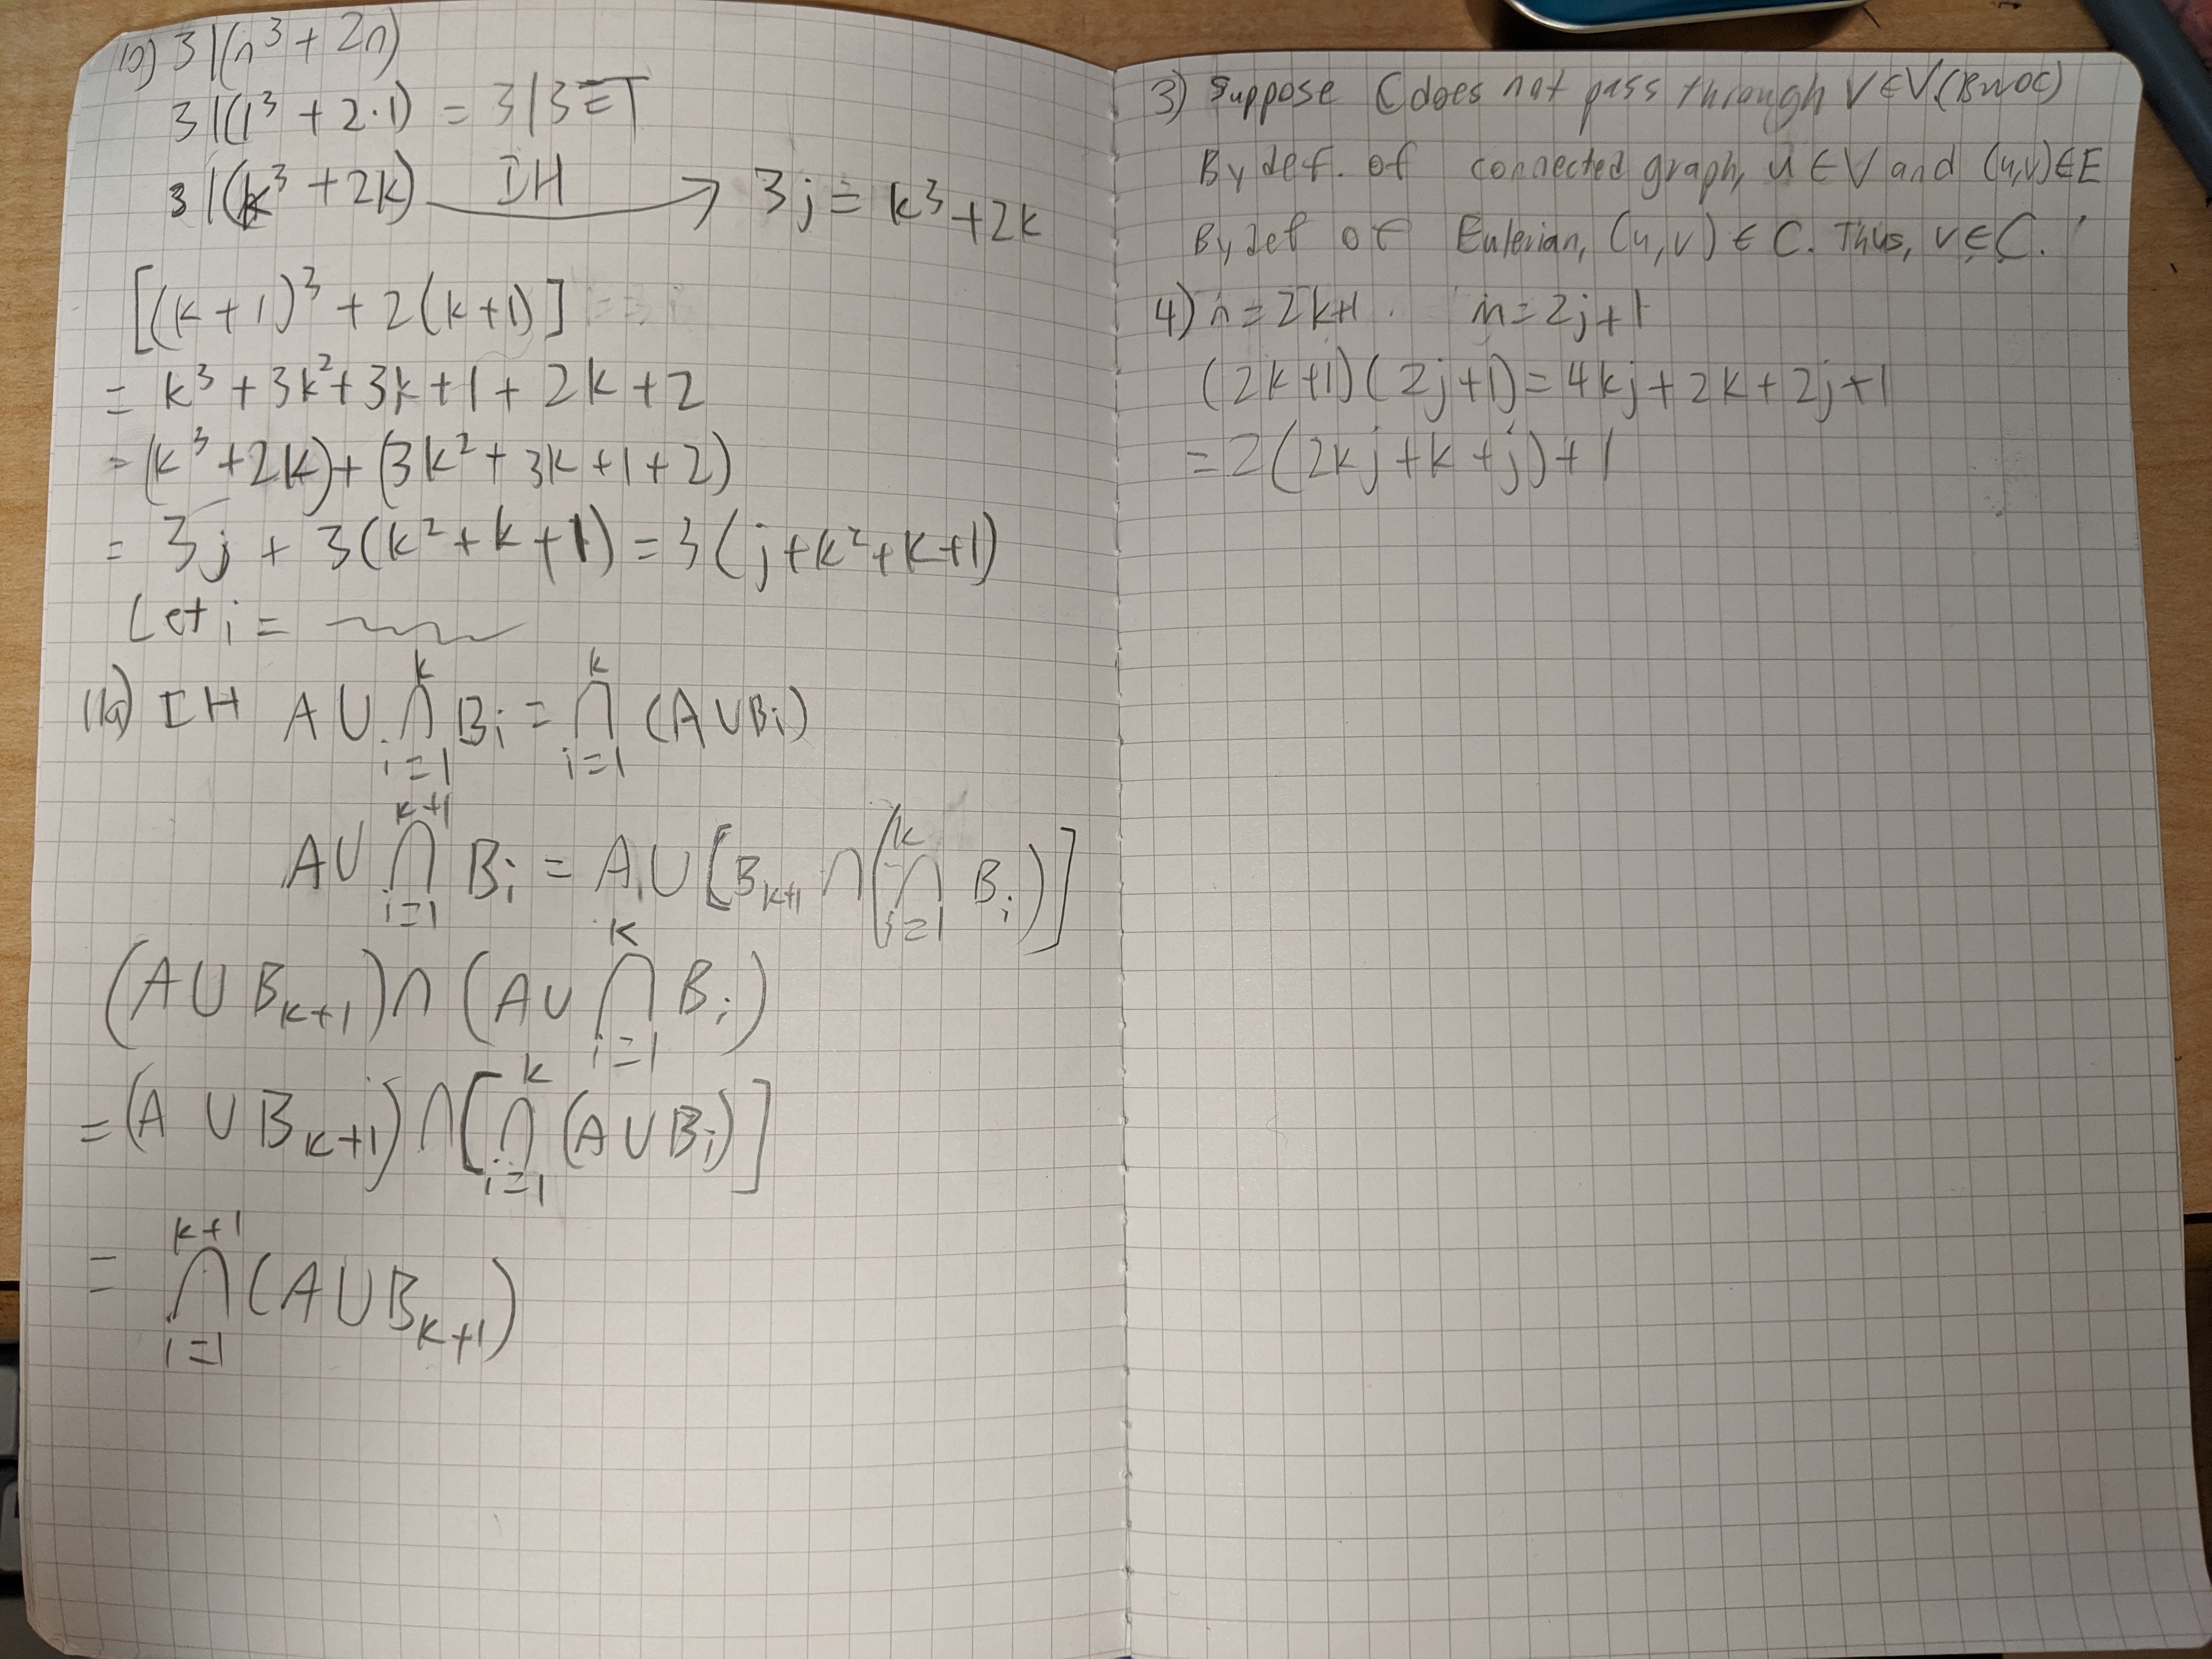 10) 3|(n³ + 2n)
3|(1³ + 2·1) = 3|3 ≡ T
3|(k³ + 2k) IH → 3j = k³ + 2k
[(k+1)³ + 2(k+1)]
= k³ + 3k² + 3k + 1 + 2k + 2
= (k³ + 2k) + (3k² + 3k + 1 + 2)
= 3j + 3(k² + k + 1) = 3(j + k² + k + 1)
Let i =
IH A ∪ ⋂_{i=1}^{k} B_i = ⋂_{i=1}^{k} (A ∪ B_i)
A ∪ ⋂_{i=1}^{k+1} B_i = A ∪ [B_{k+1} ∩ (⋂_{i=1}^{k} B_i)]
(A ∪ B_{k+1}) ∩ (A ∪ ⋂_{i=1}^{k} B_i)
= (A ∪ B_{k+1}) ∩ [⋂_{i=1}^{k} (A ∪ B_i)]
= ⋂_{i=1}^{k+1} (A ∪ B_{k+1})
3) Suppose C does not pass through v ∈ V (BWOC)
By def. of connected graph, u ∈ V and (u,v) ∈ E
By def of Eulerian, (u,v) ∈ C. Thus, v ∈ C.
4) n = 2k+1 m = 2j+1
(2k+1)(2j+1) = 4kj + 2k + 2j + 1
= 2(2kj + k + j) + 1